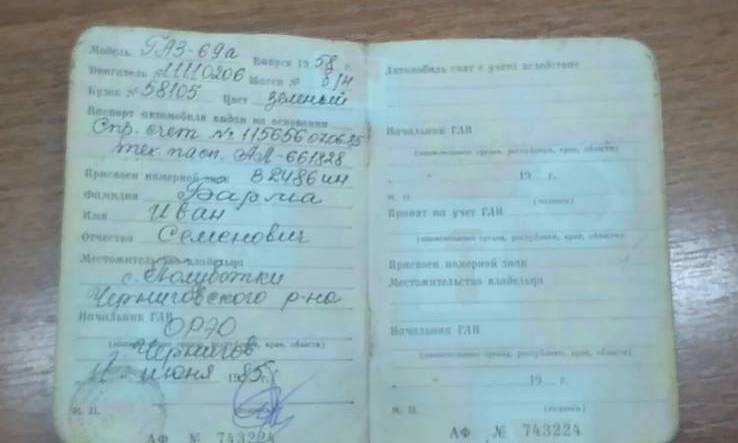 Модель ГАЗ-69а Выпуск 1958 г.
Двигатель №1110206 Шасси № б/н
Кузов №58105 Цвет зеленый
Паспорт автомобиля выдан на основании
Спр. счет № 115656 070685
тех. пасп. АЛ-661828
Присвоен номерной знак В2486ИМ
Фамилия Барма
Имя Иван
Отчество Семенович
Местожительство владельца
с. Полуботки
Черниговского р-на
Начальник ГАИ ОРЭО
(наименование органа, республики, края, области)
Чернигов
11 июня 1985 г.
М. П. (подпись)
АФ № 743224
Автомобиль снят с учета вследствие
Начальник ГАИ
(наименование органа, республики, края, области)
„ “ 19 г.
М. П. (подпись)
Принят на учет ГАИ
(наименование органа, республики, края, области)
Присвоен номерной знак
Местожительство владельца
Начальник ГАИ
(наименование органа, республики, края, области)
„ “ 19 г.
М. П. (подпись)
АФ № 743224